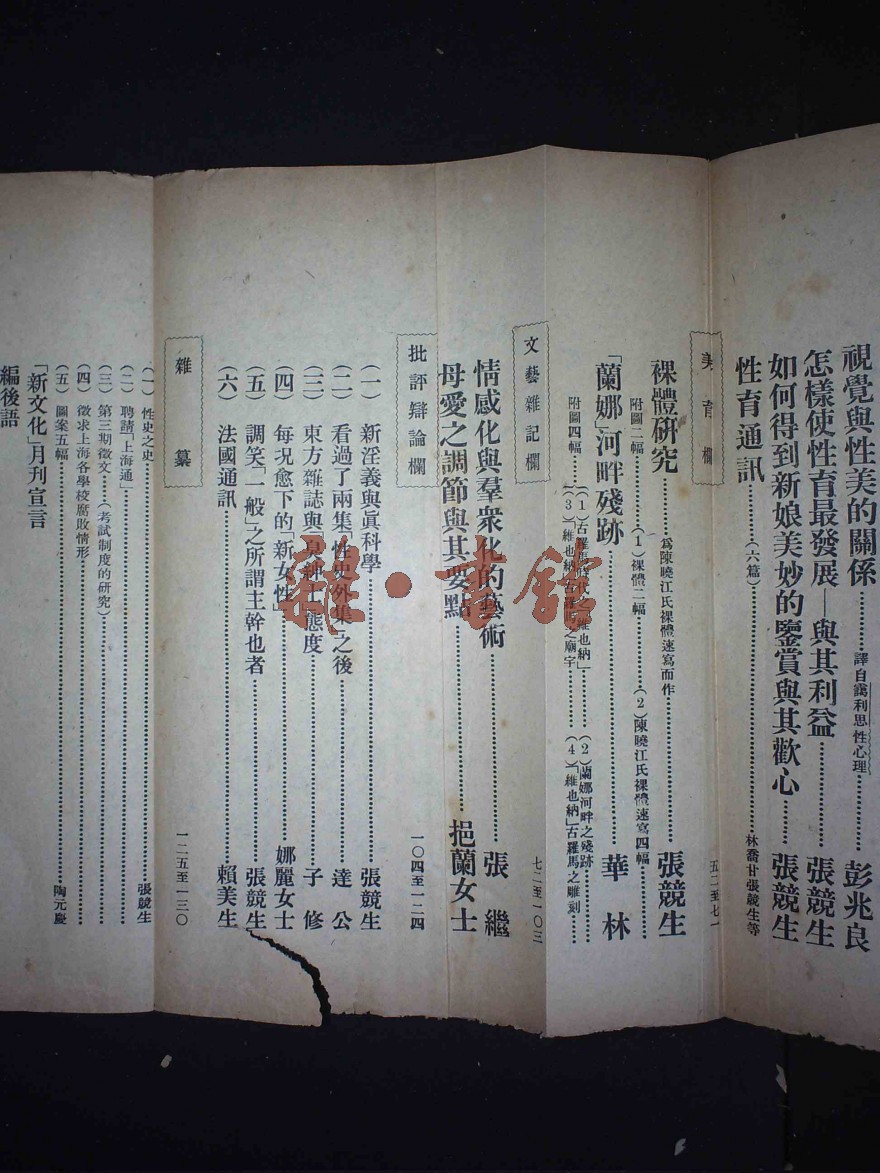 視覺與性美的關係…………譯自靄利思性心理…………彭兆良
怎樣使性育最發展—與其利益…………張競生
如何得到新娘美妙的鑒賞與其歡心…………張競生
性育通訊…………(六篇)…………林喬廿張競生等
美育欄…………五二至七一
裸體研究…………爲陳曉江氏裸體速寫而作…………張競生
附圖二幅…………(1)裸體二幅…………(2)陳曉江氏裸體速寫四幅…………
「蘭娜」河畔殘跡…………華林
附圖四幅…………(1)古羅馬時代之「維也納」…………(2)蘭娜河畔之殘跡…………
(3)「維也納」古羅馬之廟宇…………(4)「維也納」古羅馬之雕刻…………
文藝雜記欄…………七二至一〇三
情感化與羣衆化的藝術…………張繼
母愛之調節與其要點…………挹蘭女士
批評辯論欄…………一〇四至一二四
(一)新淫義與眞科學…………張競生
(二)看過了兩集「性史外集」之後…………達公
(三)東方雜誌與臭紳士態度…………子修
(四)每况愈下的「新女性」…………娜麗女士
(五)調笑「一般」之所謂主幹也者…………張競生
(六)法國通訊…………賴美生
雜纂…………一二五至一三〇
(一)性史之史…………張競生
(二)聘請「上海通」…………
(三)第三期徵文…………(考試制度的研究)…………
(四)徵求上海各學校腐敗情形…………
(五)圖案五幅…………陶元慶
「新文化」月刊宣言
編後語
雜·書館